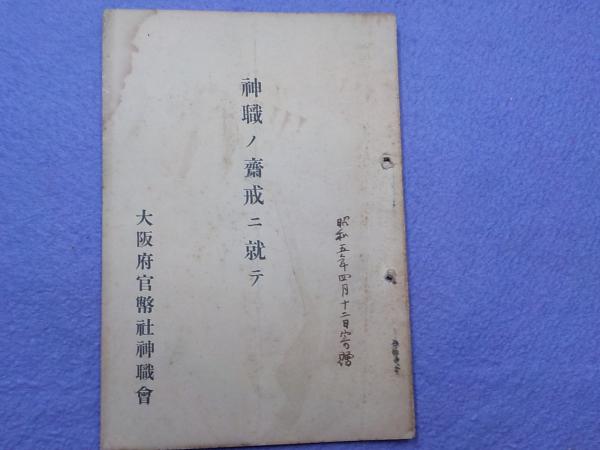 昭和五年四月十二日寄贈
神職ノ齋戒ニ就テ
大阪府官幣社神職會